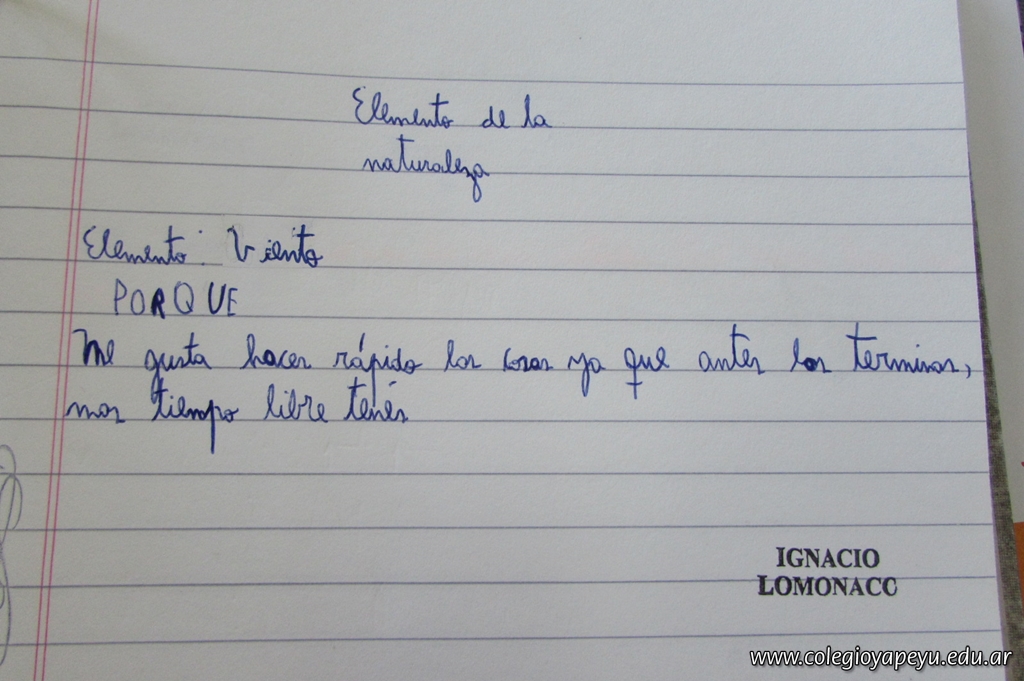 Elemento de la
naturaleza
Elemento: Viento
PORQUE
Me gusta hacer rápido las cosas ya que antes las terminas,
mas tiempo libre tenés
IGNACIO
LOMONACO
www.colegioyapeyu.edu.ar